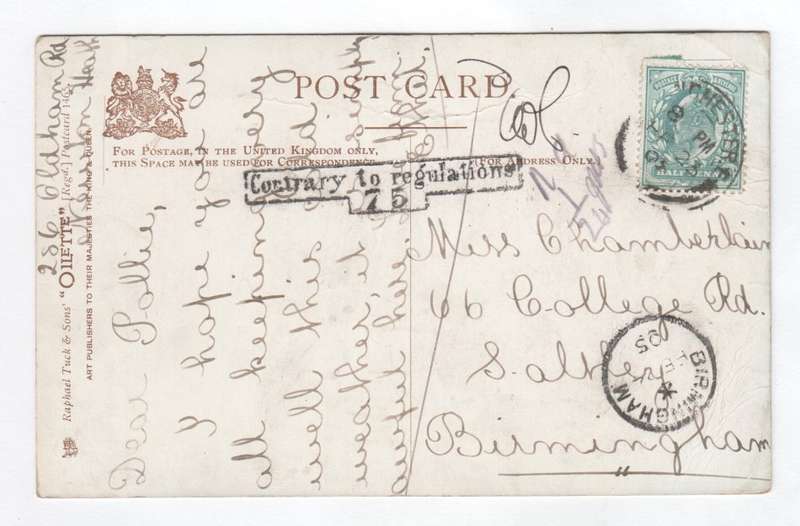 POST CARD.
FOR POSTAGE, IN THE UNITED KINGDOM ONLY,
THIS SPACE MAY BE USED FOR CORRESPONDENCE
(FOR ADDRESS ONLY.)
Contrary to regulations
75
286 Oldham Rd
Newton Heath
Raphael Tuck & Sons' "OILETTE" [Regd.] Postcard 1465.
ART PUBLISHERS TO THEIR MAJESTIES THE KING & QUEEN.
Dear Pollie,
I hope you are
all keeping very
well this cold
weather, it is simply
awful here
Miss Chamberlain
66 College Rd.
Saltley
Birmingham
HALFPENNY
PM
BIRMINGHAM
FE
05